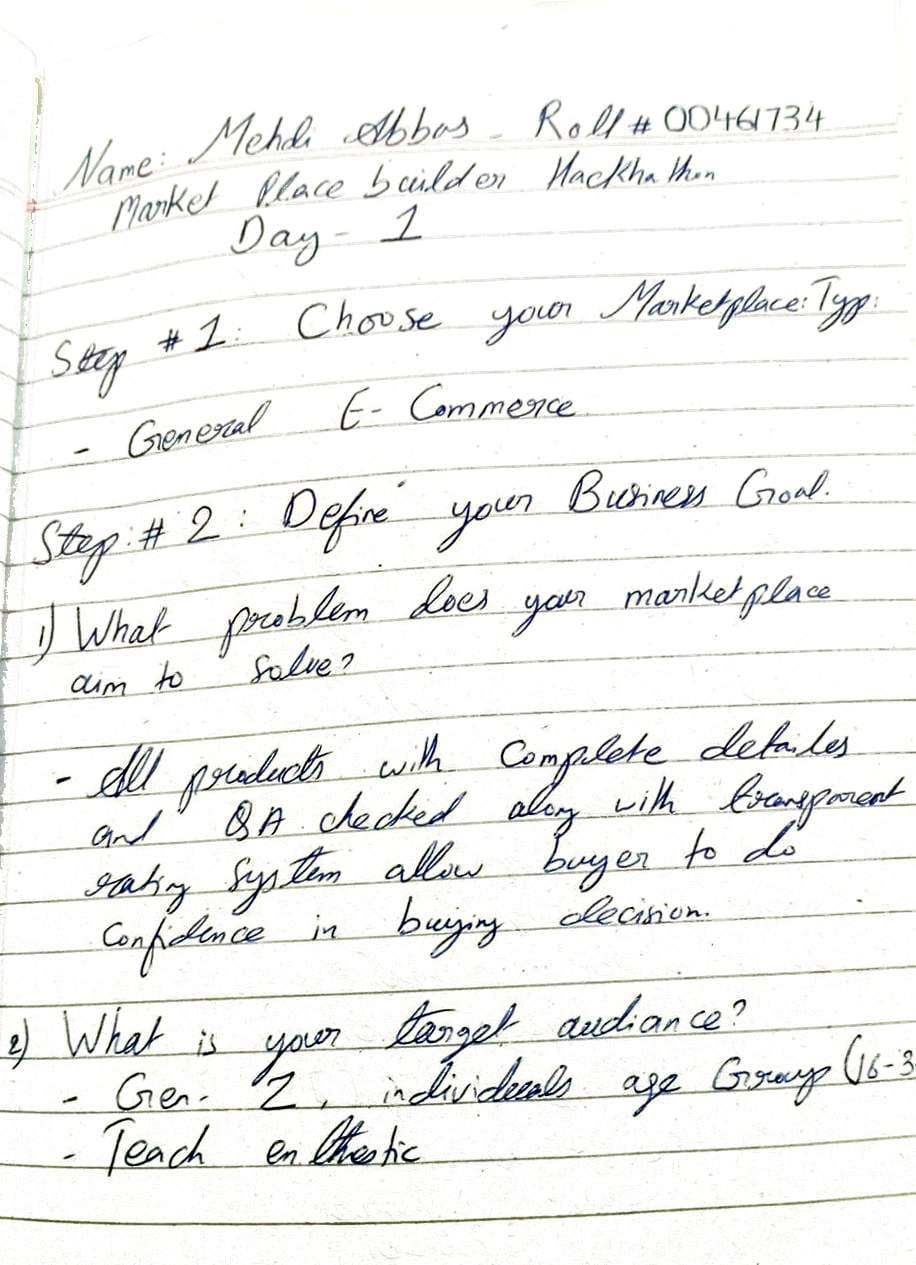 Name: Mehdi Abbas - Roll # 00461734
Market Place builder Hackhathon
Day - 1
Step #1: Choose your Marketplace: Typ:
- General E-Commerce
Step: # 2: Define your Business Goal.
1) What problem does your marketplace
aim to solve?
- All products with Complete detailes
and QA checked along with transparent
rating System allow buyer to do
Confidence in buying decision.
2) What is your target audiance?
- Gen- Z, individuals age Group (16-3
- Teach enthestic